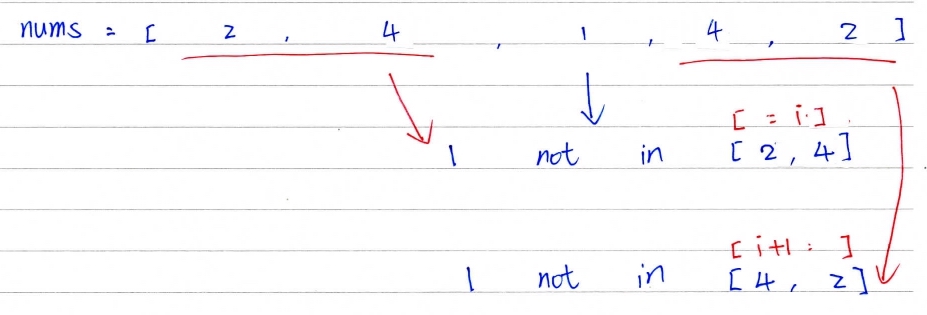 nums = [ 2 , 4 , 1 , 4 , 2 ]
[ : i ]
1 not in [ 2 , 4 ]
[ i+1 : ]
1 not in [ 4 , 2 ]